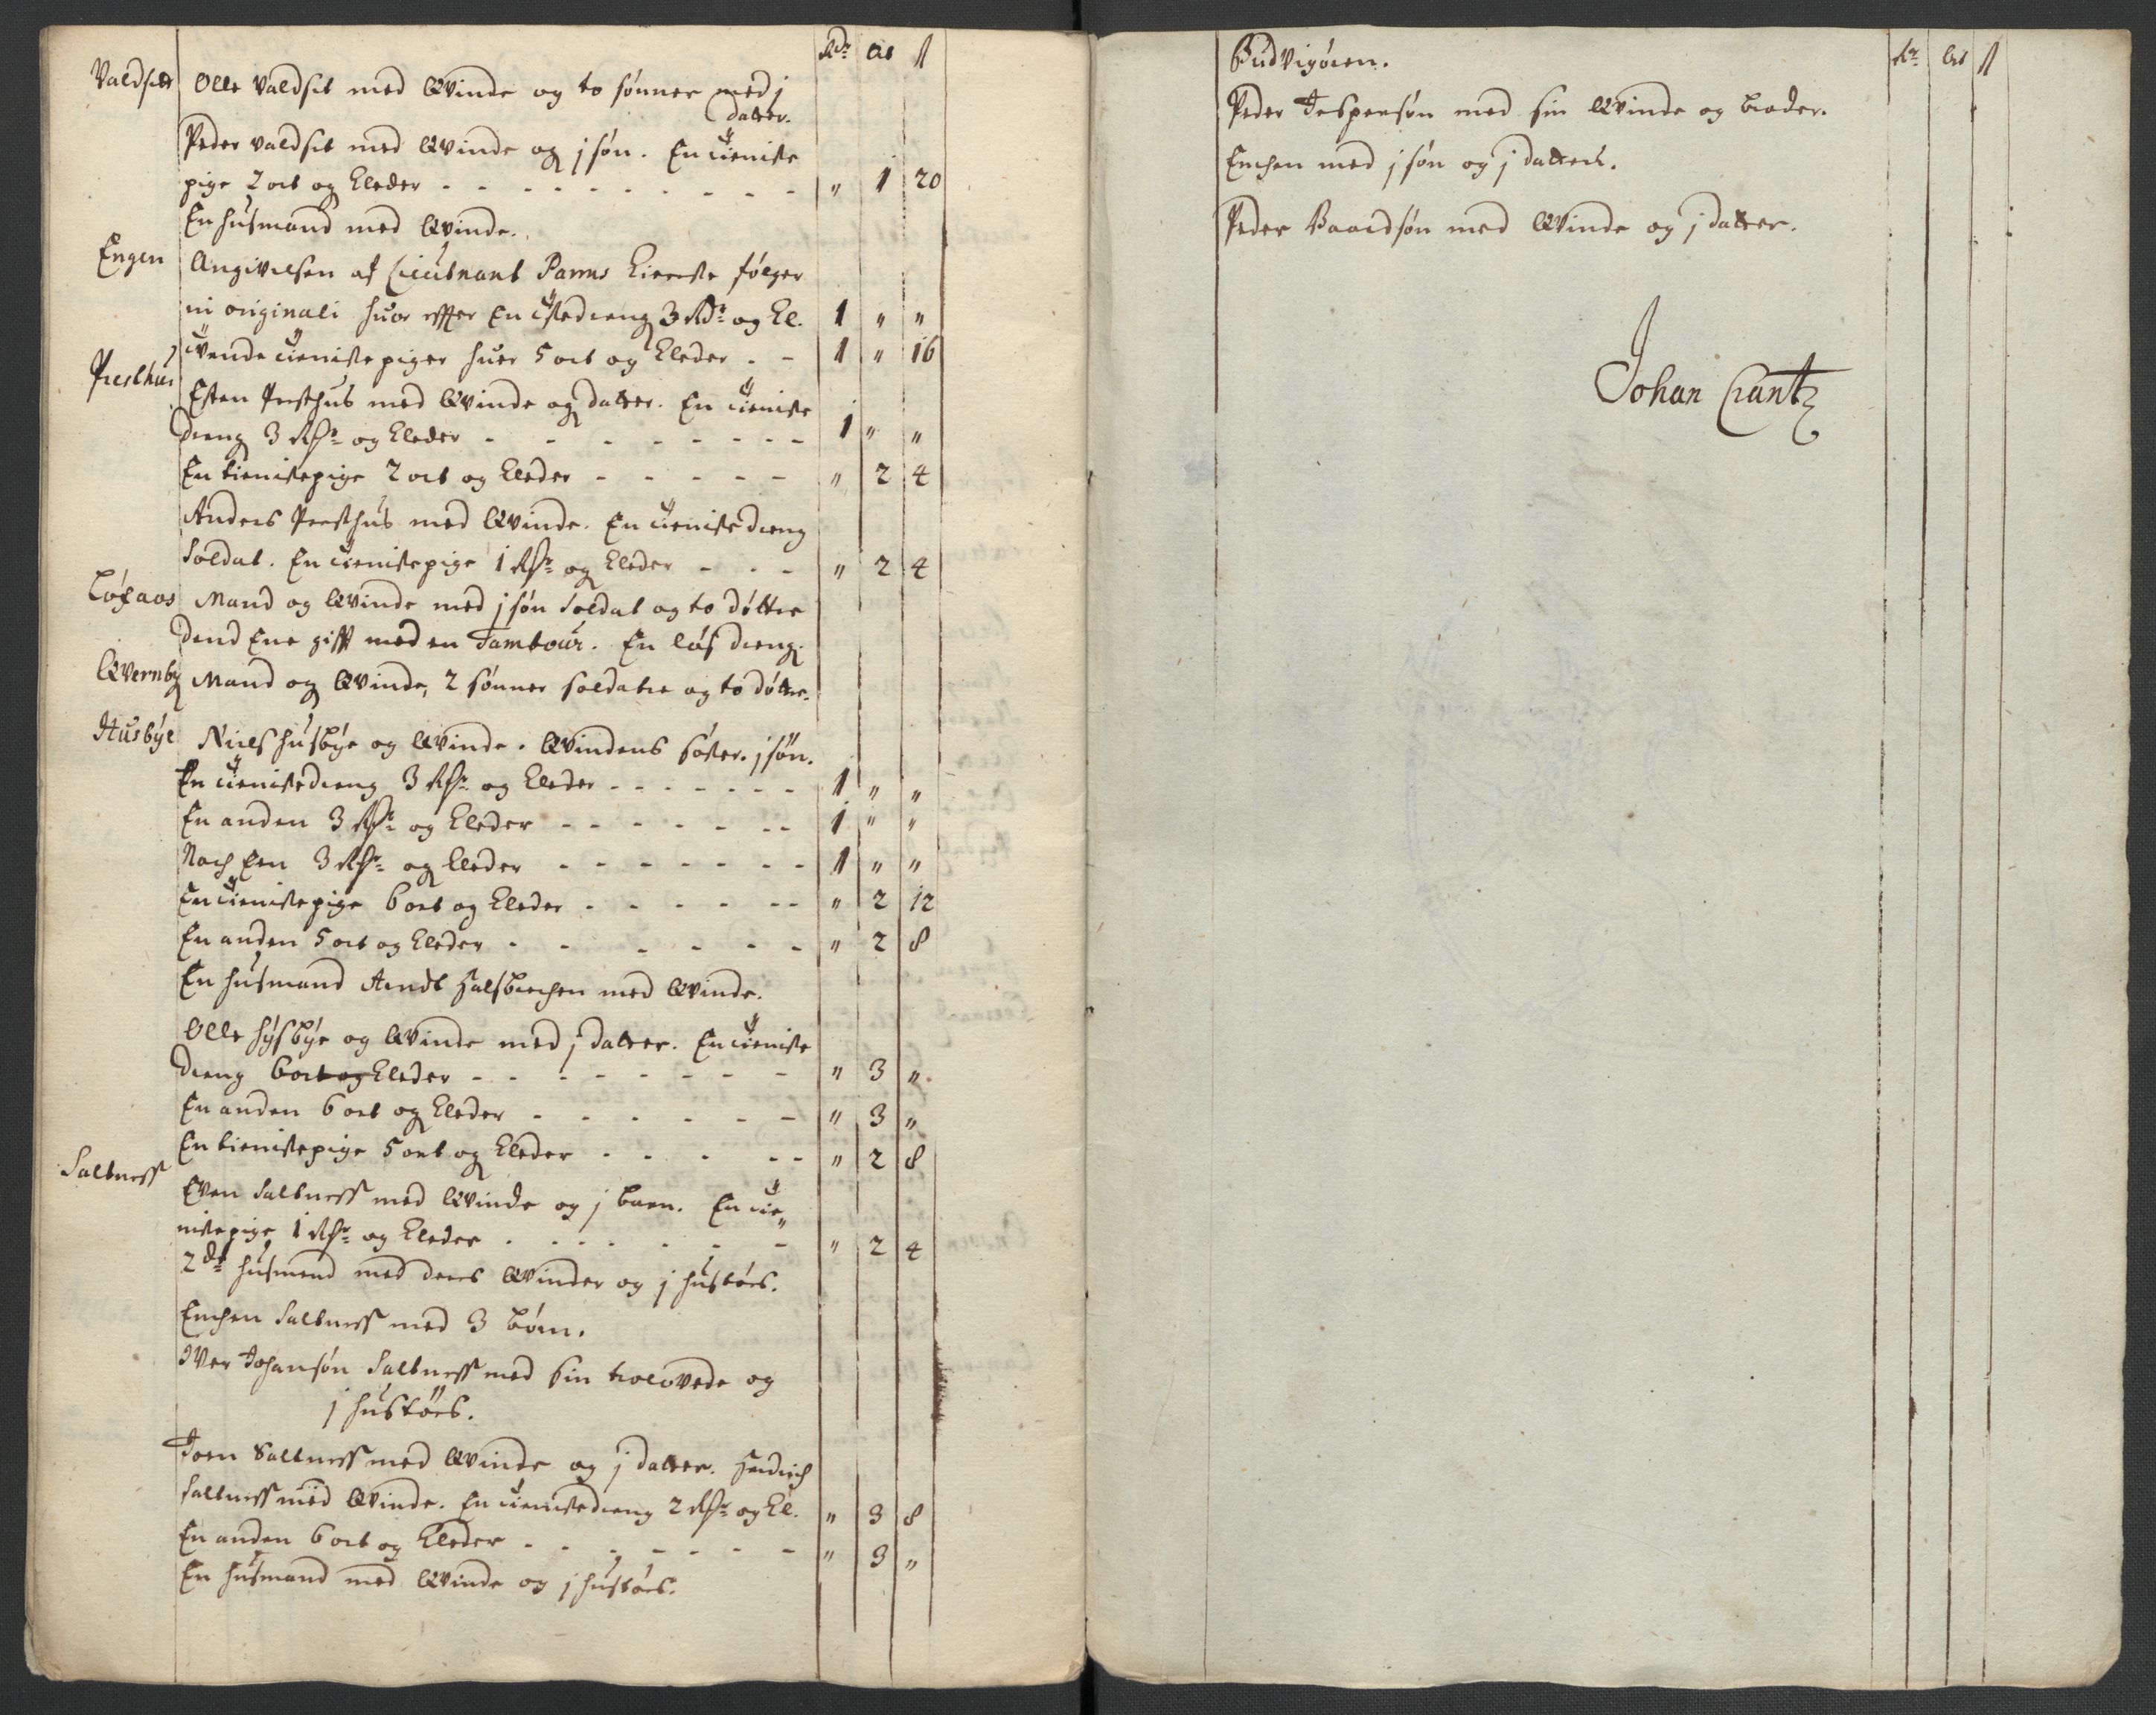 Rdr ort ß
Valdset Olle Valdset med Qvinde og to sønner med j
datter.
Peder Valdset med Qvinde og j søn. En tieniste
pige 2 ort og Kleder - - - - - - - - - " 1 20
En husmand med Qvinde.
Engen Angivelsen af Lieutnant Parms Kiereste følger
in originali huor effter En Tienistedreng 3 Rdr og Kl. 1 " "
Tvende tienistepiger huer 5 ort og Kleder - - 1 " 16
Presthus Esten Presthus med Qvinde og datter. En tieniste
dreng 3 Rdr og Kleder - - - - - - - - 1 " "
En tienistepige 2 ort og Kleder - - - - - " 2 4
Anders Presthus med Qvinde. En tienistedreng
Soldat. En tienistepige 1 Rdr og Kleder - - - " 2 4
Løxaas Mand og Qvinde med j søn Soldat og to døttre
dend Ene gifft med en Tambour. En løs dreng.
Qvernby Mand og Qvinde, 2 sønner soldater og to døttre.
Husbye Niels Husbye og Qvinde. Qvindens søster. j søn.
En tienistedreng 3 Rdr og Kleder - - - - - - - 1 " "
En anden 3 Rdr og Kleder - - - - - - - 1 " "
Noch Een 3 Rdr og Kleder - - - - - - - 1 " "
En tienistepige 6 ort og Kleder - - - - - - " 2 12
En anden 5 ort og Kleder - - - - - - - " 2 8
En husmand Arndt Halsbrechen med Qvinde.
Olle Husbye og Qvinde med j datter. En tieniste
dreng 6 ort og Kleder - - - - - - - - " 3 "
En anden 6 ort og Kleder - - - - - - " 3 "
En tienistepige 5 ort og Kleder - - - - - " 2 8
Saltness Even Saltness med Qvinde og j barn. En tie
nistepige 1 Rdr og Kleder - - - - - - - " 2 4
2de husmend med deres Qvinder og j hustøes.
Enchen Saltness med 3 børn.
Iver Johansøn Saltness med sin trolovede og
j hustøes.
Joen Saltness med Qvinde og j datter. Hendrich
Saltness med Qvinde. En tienistedreng 2 Rdr og Kl. " 3 8
En anden 6 ort og Kleder - - - - - - - " 3 "
En husmand med Qvinde og j hustøes.
Budvigøren. Rdr ort ß
Peder Jespersøn med sin Qvinde og broder.
Enchen med j søn og j datter.
Peder Baardsøn med Qvinde og j datter.
Johan Crantz